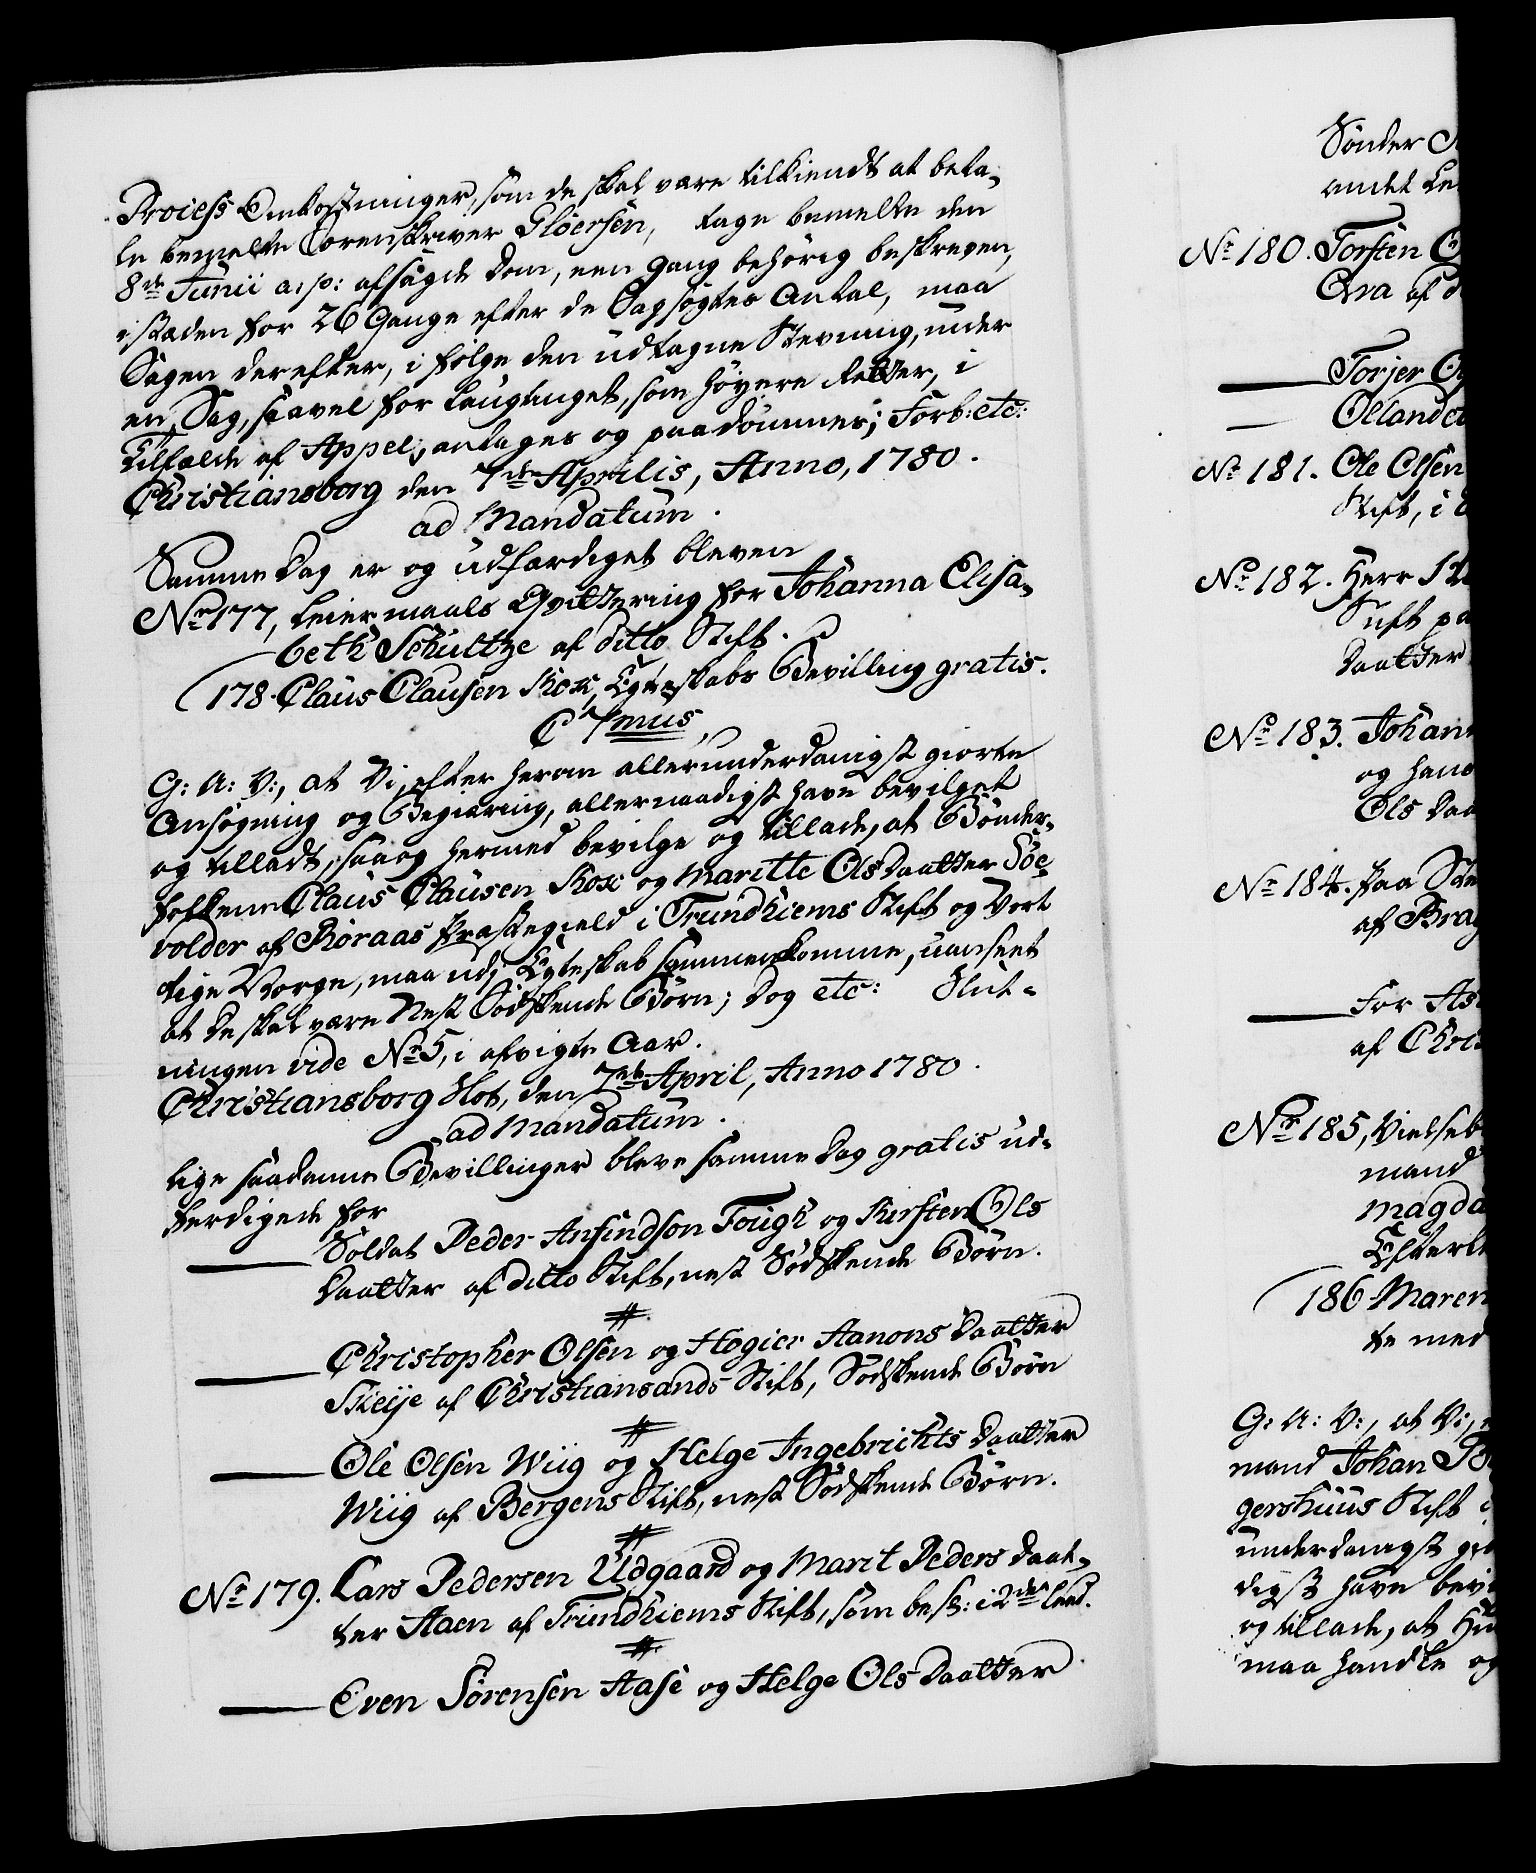 Process Omkostninger, som de skal være tilkiendt at beta-
le bemelte Sorenskriver Gløersen, tage bemelte den
8de Junii a: p: afsagde Dom, een gang behørig beskreven,
i steden for 26 Gange efter de Sagsøgtes Antal, maa
Sagen derefter, i følge den udtagne Stevning, under
en Sag, saavel for Laugtinget, som høyere Retter, i
Tilfælde af Appel, antages og paadømmes; Forb: etc:
Christiansborg den 7de Aprilis, Anno, 1780.
ad Mandatum.
Samme Dag er og udfærdiget bleven
No 177, Leiermaals Qvittering for Johanna Elisa-
beth Schultze af ditto Stift.
178. Claus Clausen Kox, Egteskabs Bevilling gratis.
C 7mus,
G: A: V:, at Vi, efter herom allerunderdanigst giorte
Ansøgning og Begiering, allernaadigst have bevilget
og tilladt, saa og hermed bevilge og tillade, at Bønder-
folkene Claus Clausen Kox og Maritte Ols Daatter Søe-
volder af Røraas Præstegield i Trundhiems Stift og Vort
Rige Norge, maa udj Egteskab sammenkomme, uanseet
at de skal være Nest Sødskende Børn; Dog etc: Slut-
ningen vide No 5, i afvigte Aar.
Christiansborg Slot, den 7de April, Anno 1780.
ad Mandatum.
Lige saadanne Bevillinger bleve samme Dag gratis ud-
færdigede for
Soldat Peder Anfindson Fough og Kirsten Ols
Daatter af ditto Stift, nest Sødskende Børn.
#
Christopher Olsen og Hogier Aanons Daatter
Skeije af Christiansands Stift, Sødskende Børn
#
Ole Olsen Wiig og Helge Ingebrichts Daatter
Wiig af Bergens Stift, nest Sødskende Børn.
#
No 179. Lars Pedersen Udgaard og Marit Peders Daat-
ter Aaen af Trundhiems Stift, som besl: i 2det Leed.
#
Even Sørensen Aase og Helge Ols Daatter
Sønder
andet Le
No 180. Torsten
Qva af
Torjer
Ollandet
No 181. Ole Olsen
Stift, i
No 182. Herr
Stift pa
Daatter
No 183. Johan
og hans
Ols Daa
No 184. Paa
af Brag
For As
af Chri
No 185, Vielseb
mand
Magda
Efterl
186 Maren
te med
G: A: V:, at Vi,
mand Johan
gershuus Stift
underdanigst gio
digst have bevi
og tillade, at
maa handle og